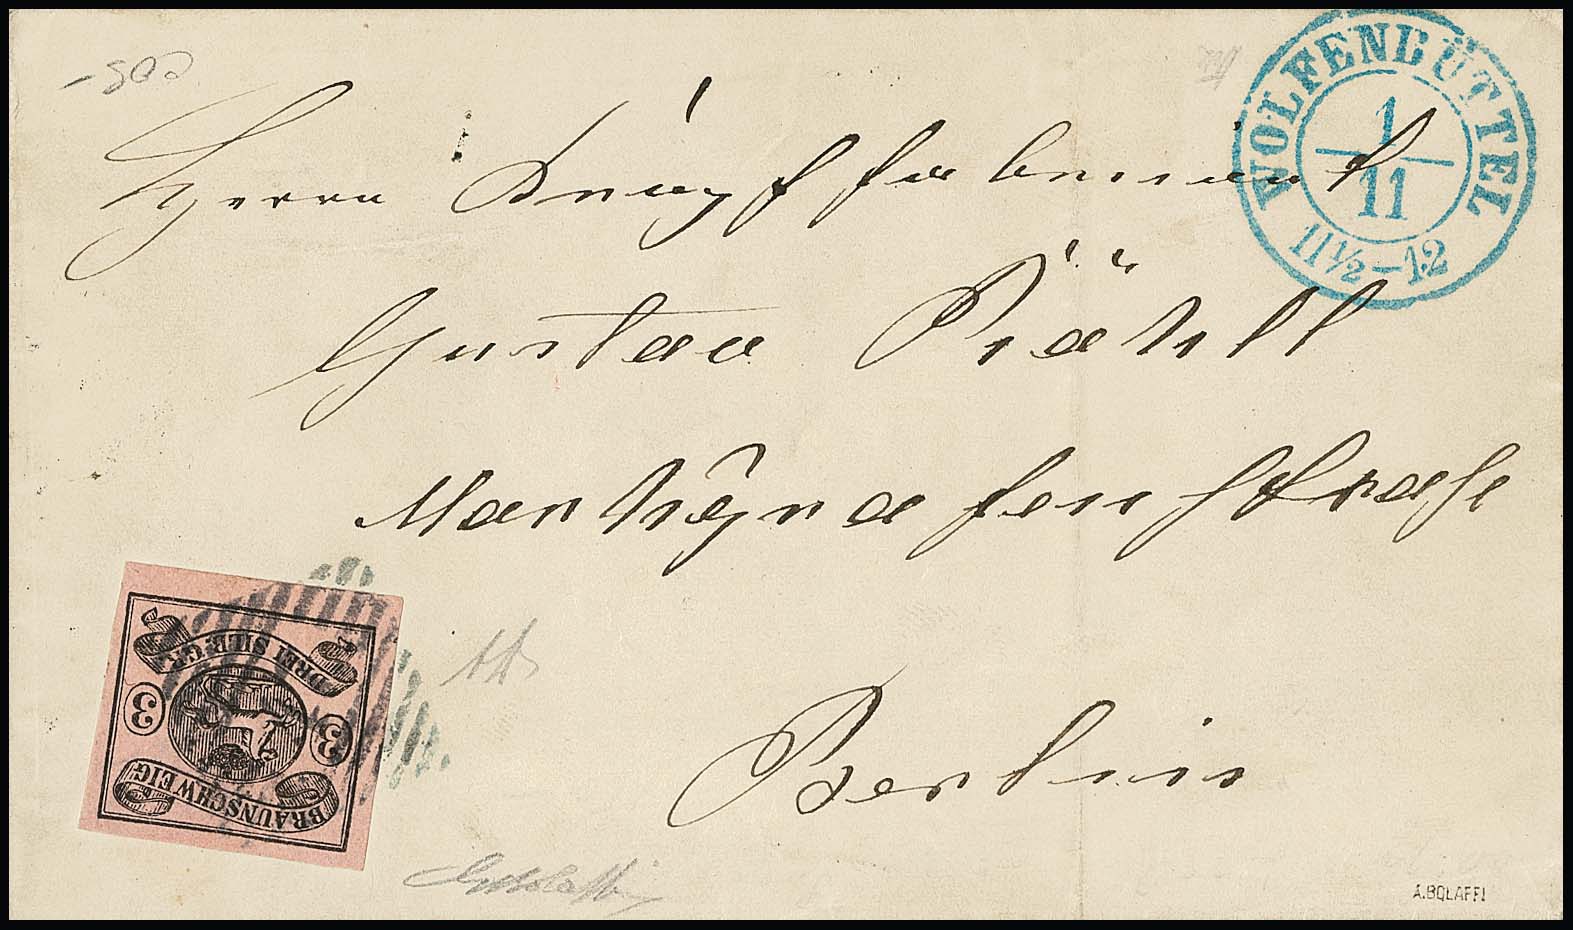 WOLFENBÜTTEL
1
11
11½-12
Herrn
Gustav
Markgrafenstraße
Berlin
DREI SILB. GR.
3 3
BRAUNSCHWEIG
A. BOLAFFI